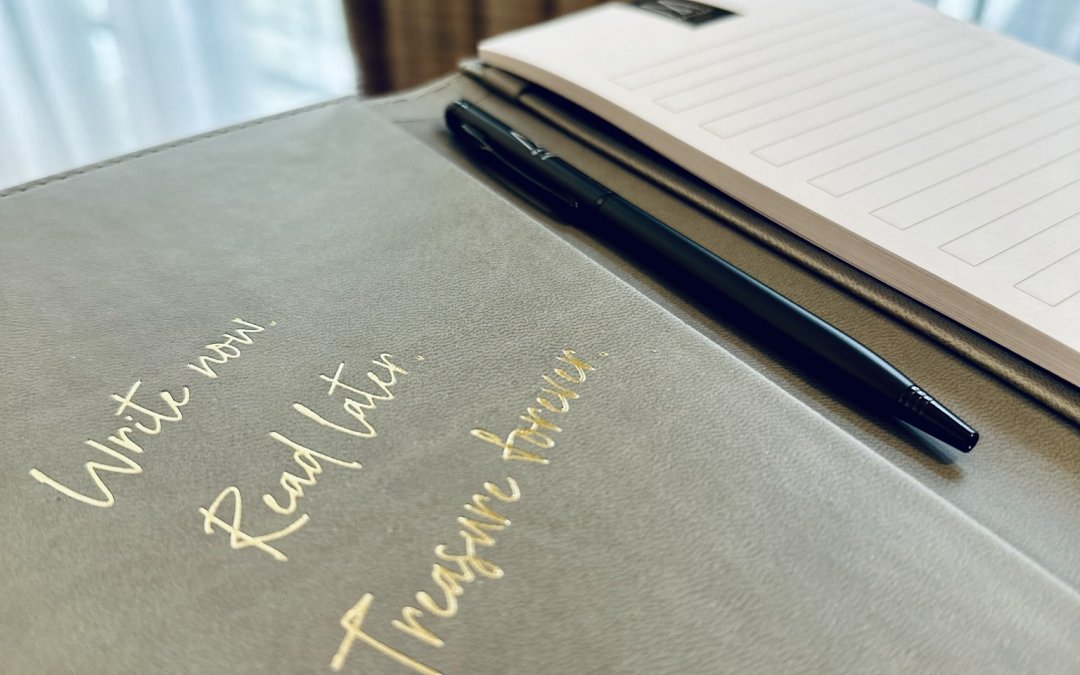 Write now.
Read later.
Treasure forever.